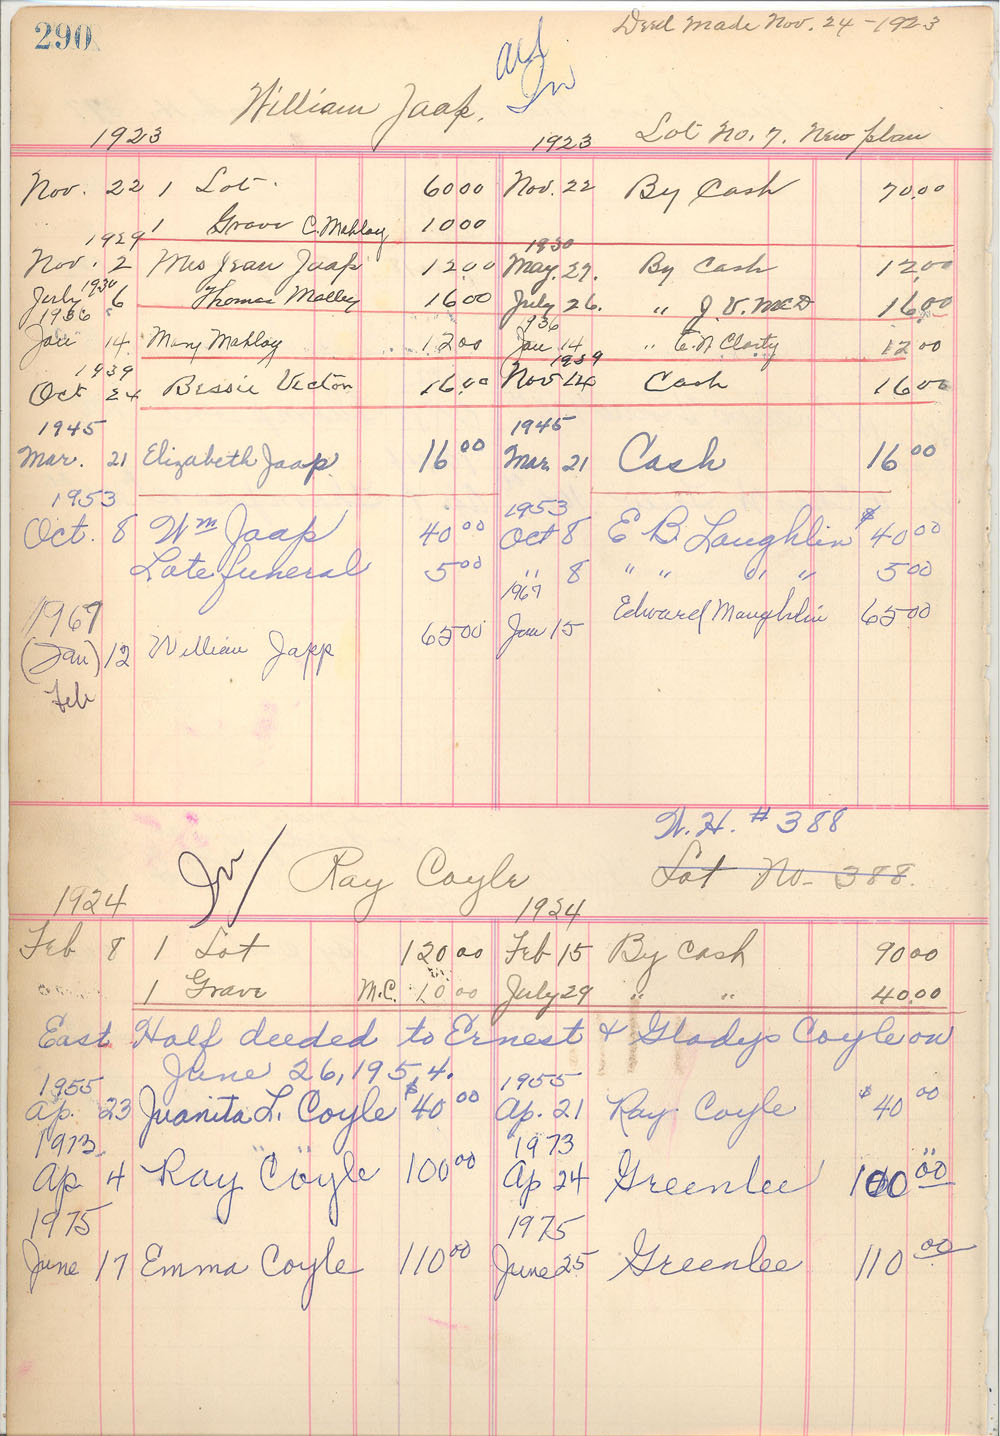 290
Deed Made Nov. 24-1923
William Jaap.
1923 1923 Lot No. 7. New plan
Nov. 22 1 Lot. 60 00 Nov. 22 By Cash 70.00
1 Grave C. Mahloy 10 00
1929 1930
Nov. 2 Mrs Jean Jaap 12.00 May. 27. By Cash 12.00
1930
July 6 Thomas Malley 16 00 July 26. " J. V. McD 16.00
1936 936
Jan 14. Mary Mahloy 12 00 Jan 14 " 12 00
1939 1939
Oct 24 Bessie Vecton 16.00 Nov 14 Cash 16 00
1945 1945
Mar. 21 Elizabeth Jaap 16 00 Mar. 21 Cash 16 00
1953 1953
Oct. 8 Wm Jaap 40 00 Oct 8 E B. Loughlin $40 00
Late funeral 5 00 " 8 " " " " 5 00
1967 1967
(Jan) 12 William Japp 65 00 Jan 15 Edward Maughlin 65 00
Feb
W. H. # 388
Ray Coyle Lot No. 388.
1924 1924
Feb 8 1 Lot 120 00 Feb 15 By Cash 90 00
1 Grave M.C. 10 00 July 29 " " 40.00
East Half deeded to Ernest & Gladys Coyle on
June 26, 1954.
1955 1955
Ap. 23 Juanita L. Coyle $40 00 Ap. 21 Ray Coyle $40 00
1973 1973
Ap 4 Ray "C" Coyle 100 00 Ap 24 Greenlee 100 00
1975 1975
June 17 Emma Coyle 110 00 June 25 Greenlee 110 00